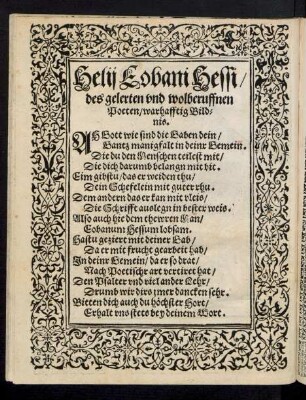 Helij Eobani Hessi/
des gelerten vnd wolberuffnen
Poeten/warhafftig Bild-
nis.
Ah Gott wie sind die Gaben dein/
Gantz manigfalt in deinr Gemein.
Die du den Menschen teilest mit/
Die dich darumb belangn mit bit.
Eim gibstu/das er weiden thu/
Dein Schefelein mit guter rhu.
Dem andern das er kan mit vleis/
Die Schrifft auslegn in bester weis.
Also auch hie dem thewren Man/
Eobanum Hessum lobsam.
Hastu geziert mit deiner Gab/
Da er mit frucht gearbeit hab/
In deinr Gemein/da er so drat/
Nach Poetisch art vertiret hat/
Den Psalter vnd viel ander Lehr/
Drumb wir dirs jmer dancken sehr.
Bieten dich auch du höchster Hort/
Erhalt vns stets bey deinem Wort.